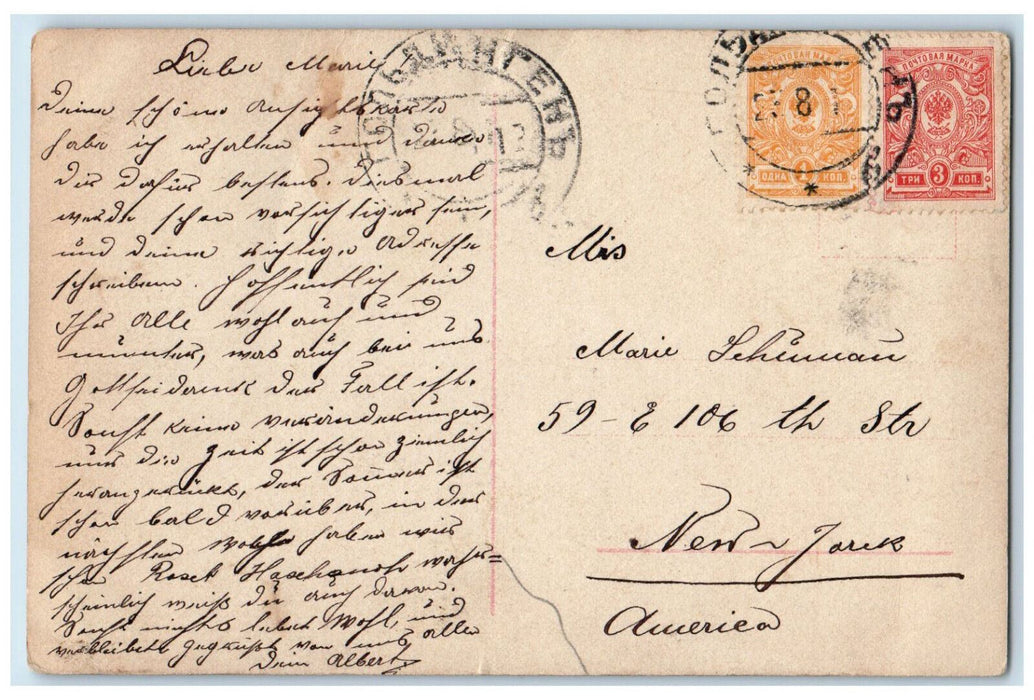 Lieber Marie!
Deine schöne Ansichtskarte
habe ich erhalten und danke
Dir dafür bestens. Diesmal
werde schon vorsichtiger sein,
und deine richtige Adresse
schreiben. Hoffentlich seid
Ihr Alle wohl auch und
munter, was auch bei uns
Gottseidank der Fall ist.
Sonst keine veränderungen,
nur die Zeit ist schon ziemlich
herangerückt, der Sommer ist
schon bald vorüber, in der
nächsten Woche haben wir
schon wahr=
scheinlich weißt du auch davon.
Sonst nichts lebet wohl und
verbleibet gegrüßt von uns allen
Dein Albert
ГОЛЬДИНГЕНЪ
ПОЧТОВАЯ МАРКА
ОДНА 1 КОП.
ПОЧТОВАЯ МАРКА
ТРИ 3 КОП.
Mis
Marie Schünnau
59-E 106 th Str
New-Jorck
America